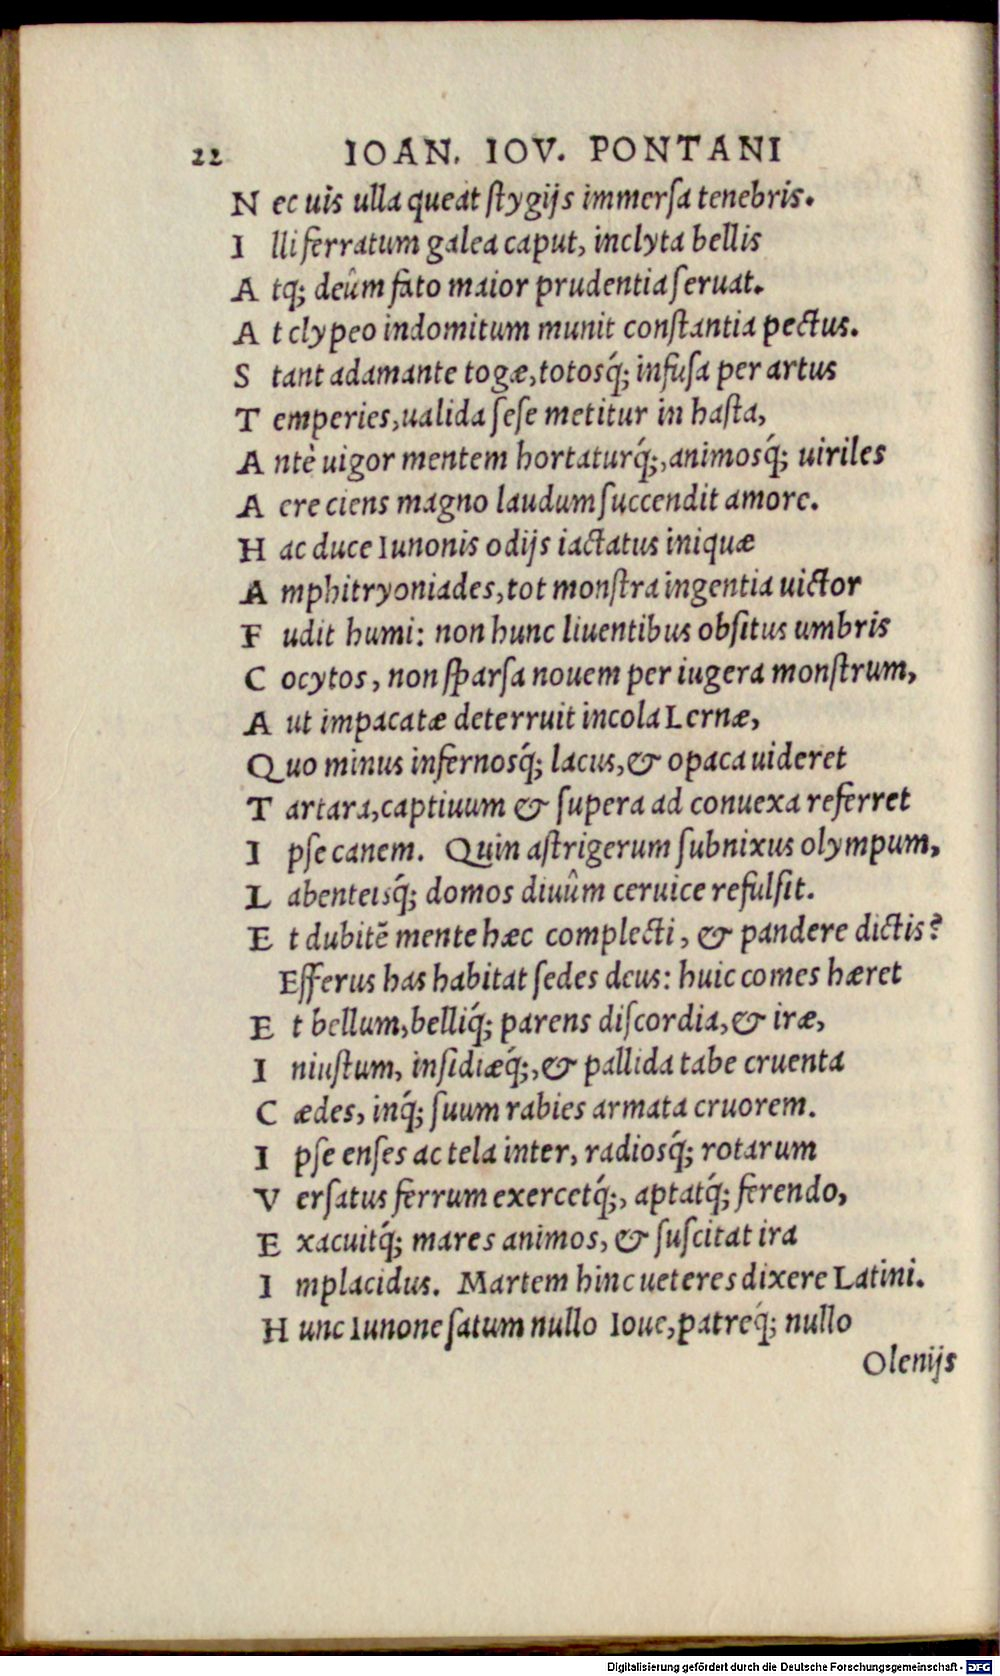 22 IOAN. IOV. PONTANI
N ec uis ulla queat ſtygijs immerſa tenebris.
I lli ferratum galea caput, inclyta bellis
A tq; deûm fato maior prudentia ſeruat.
A t clypeo indomitum munit conſtantia pectus.
S tant adamante togæ, totosq́; infuſa per artus
T emperies, ualida ſeſe metitur in haſta,
A ntè uigor mentem hortaturq́;, animosq́; uiriles
A ere ciens magno laudum ſuccendit amore.
H ac duce Iunonis odijs iactatus iniquæ
A mphitryoniades, tot monſtra ingentia uictor
F udit humi: non hunc liuentibus obſitus umbris
C ocytos, non ſparſa nouem per iugera monſtrum,
A ut impacatæ deterruit incola Lernæ,
Q uo minus infernosq́; lacus, & opaca uideret
T artara, captiuum & ſupera ad conuexa referret
I pſe canem. Quin aſtrigerum ſubnixus olympum,
L abenteisq́; domos diuûm ceruice refulſit.
E t dubitē mente hæc complecti, & pandere dictis?
Efferus has habitat ſedes deus: huic comes hæret
E t bellum, belliq́; parens diſcordia, & iræ,
I niuſtum, inſidiæq́;, & pallida tabe cruenta
C ædes, inq́; ſuum rabies armata cruorem.
I pſe enſes ac tela inter, radiosq́; rotarum
V erſatus ferrum exercetq́;, aptatq́; ferendo,
E xacuitq́; mares animos, & ſuſcitat ira
I mplacidus. Martem hinc ueteres dixere Latini.
H unc Iunone ſatum nullo Ioue, patreq́; nullo
Olenijs
Digitalisierung gefördert durch die Deutsche Forschungsgemeinschaft - DFG